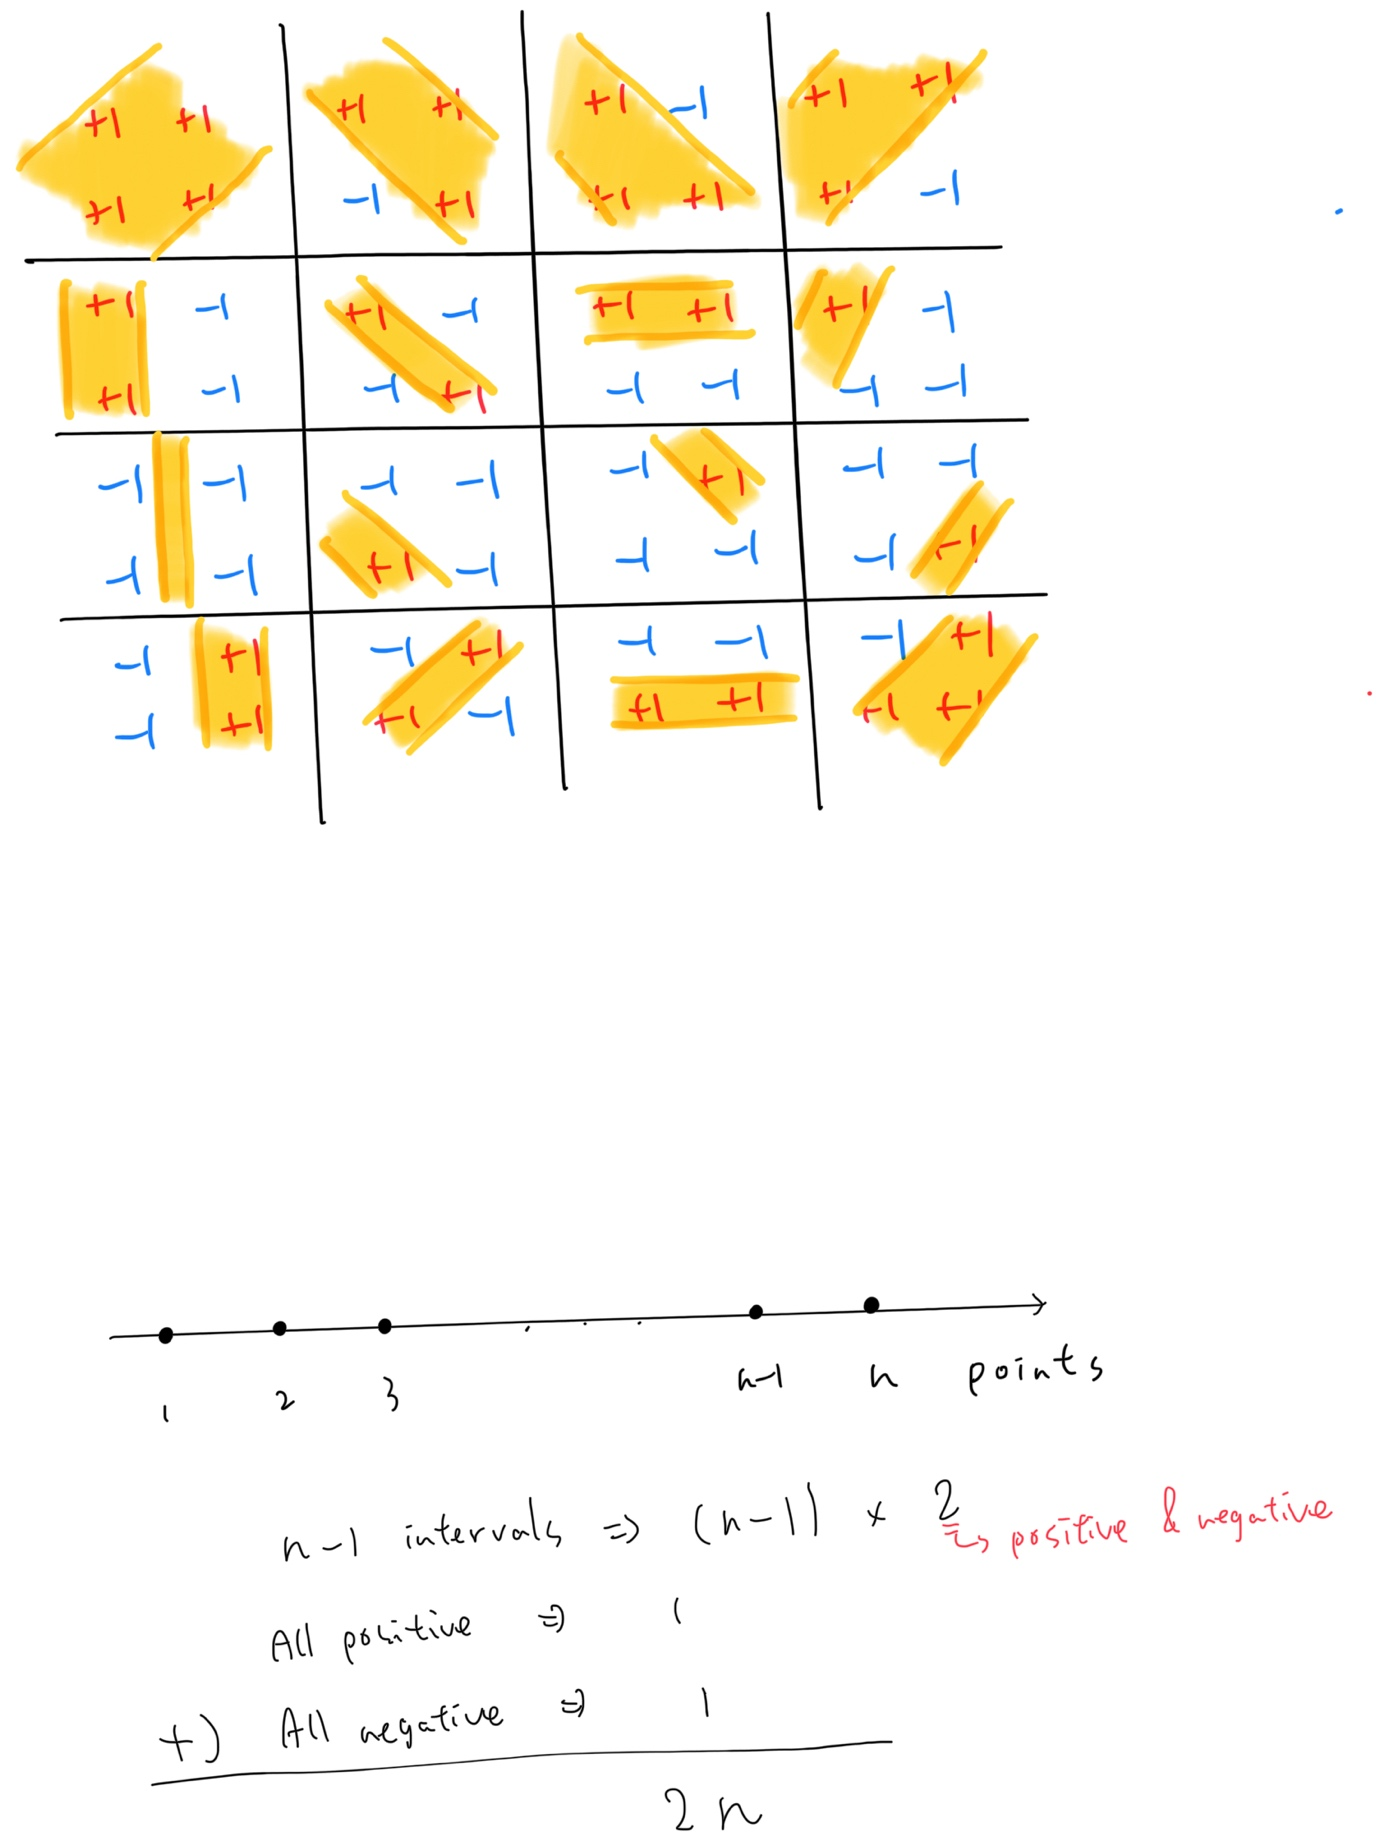 +1 +1 +1 +1 +1 -1 +1 +1
+1 +1 -1 +1 +1 +1 +1 -1
+1 -1 +1 -1 +1 +1 +1 -1
+1 -1 -1 +1 -1 -1 -1 -1
-1 -1 -1 -1 -1 +1 -1 -1
-1 -1 +1 -1 -1 -1 -1 +1
-1 +1 -1 +1 -1 -1 -1 +1
-1 +1 +1 -1 +1 +1 +1 +1
1 2 3 . . . n-1 n points
n-1 intervals => (n-1) × 2 ↳ positive & negative
All positive => 1
+) All negative => 1
2n